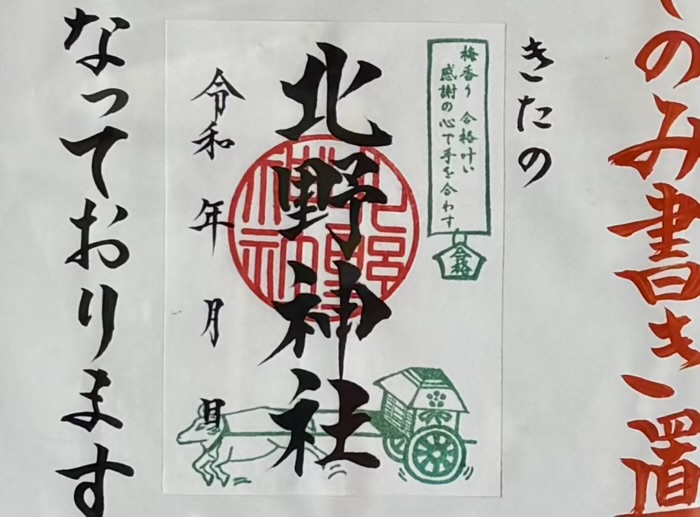 のみ書き置
きたの
梅香り 合格叶い
感謝の心で手を合わす
合格
北野神社
令和 年 月 日
なっております